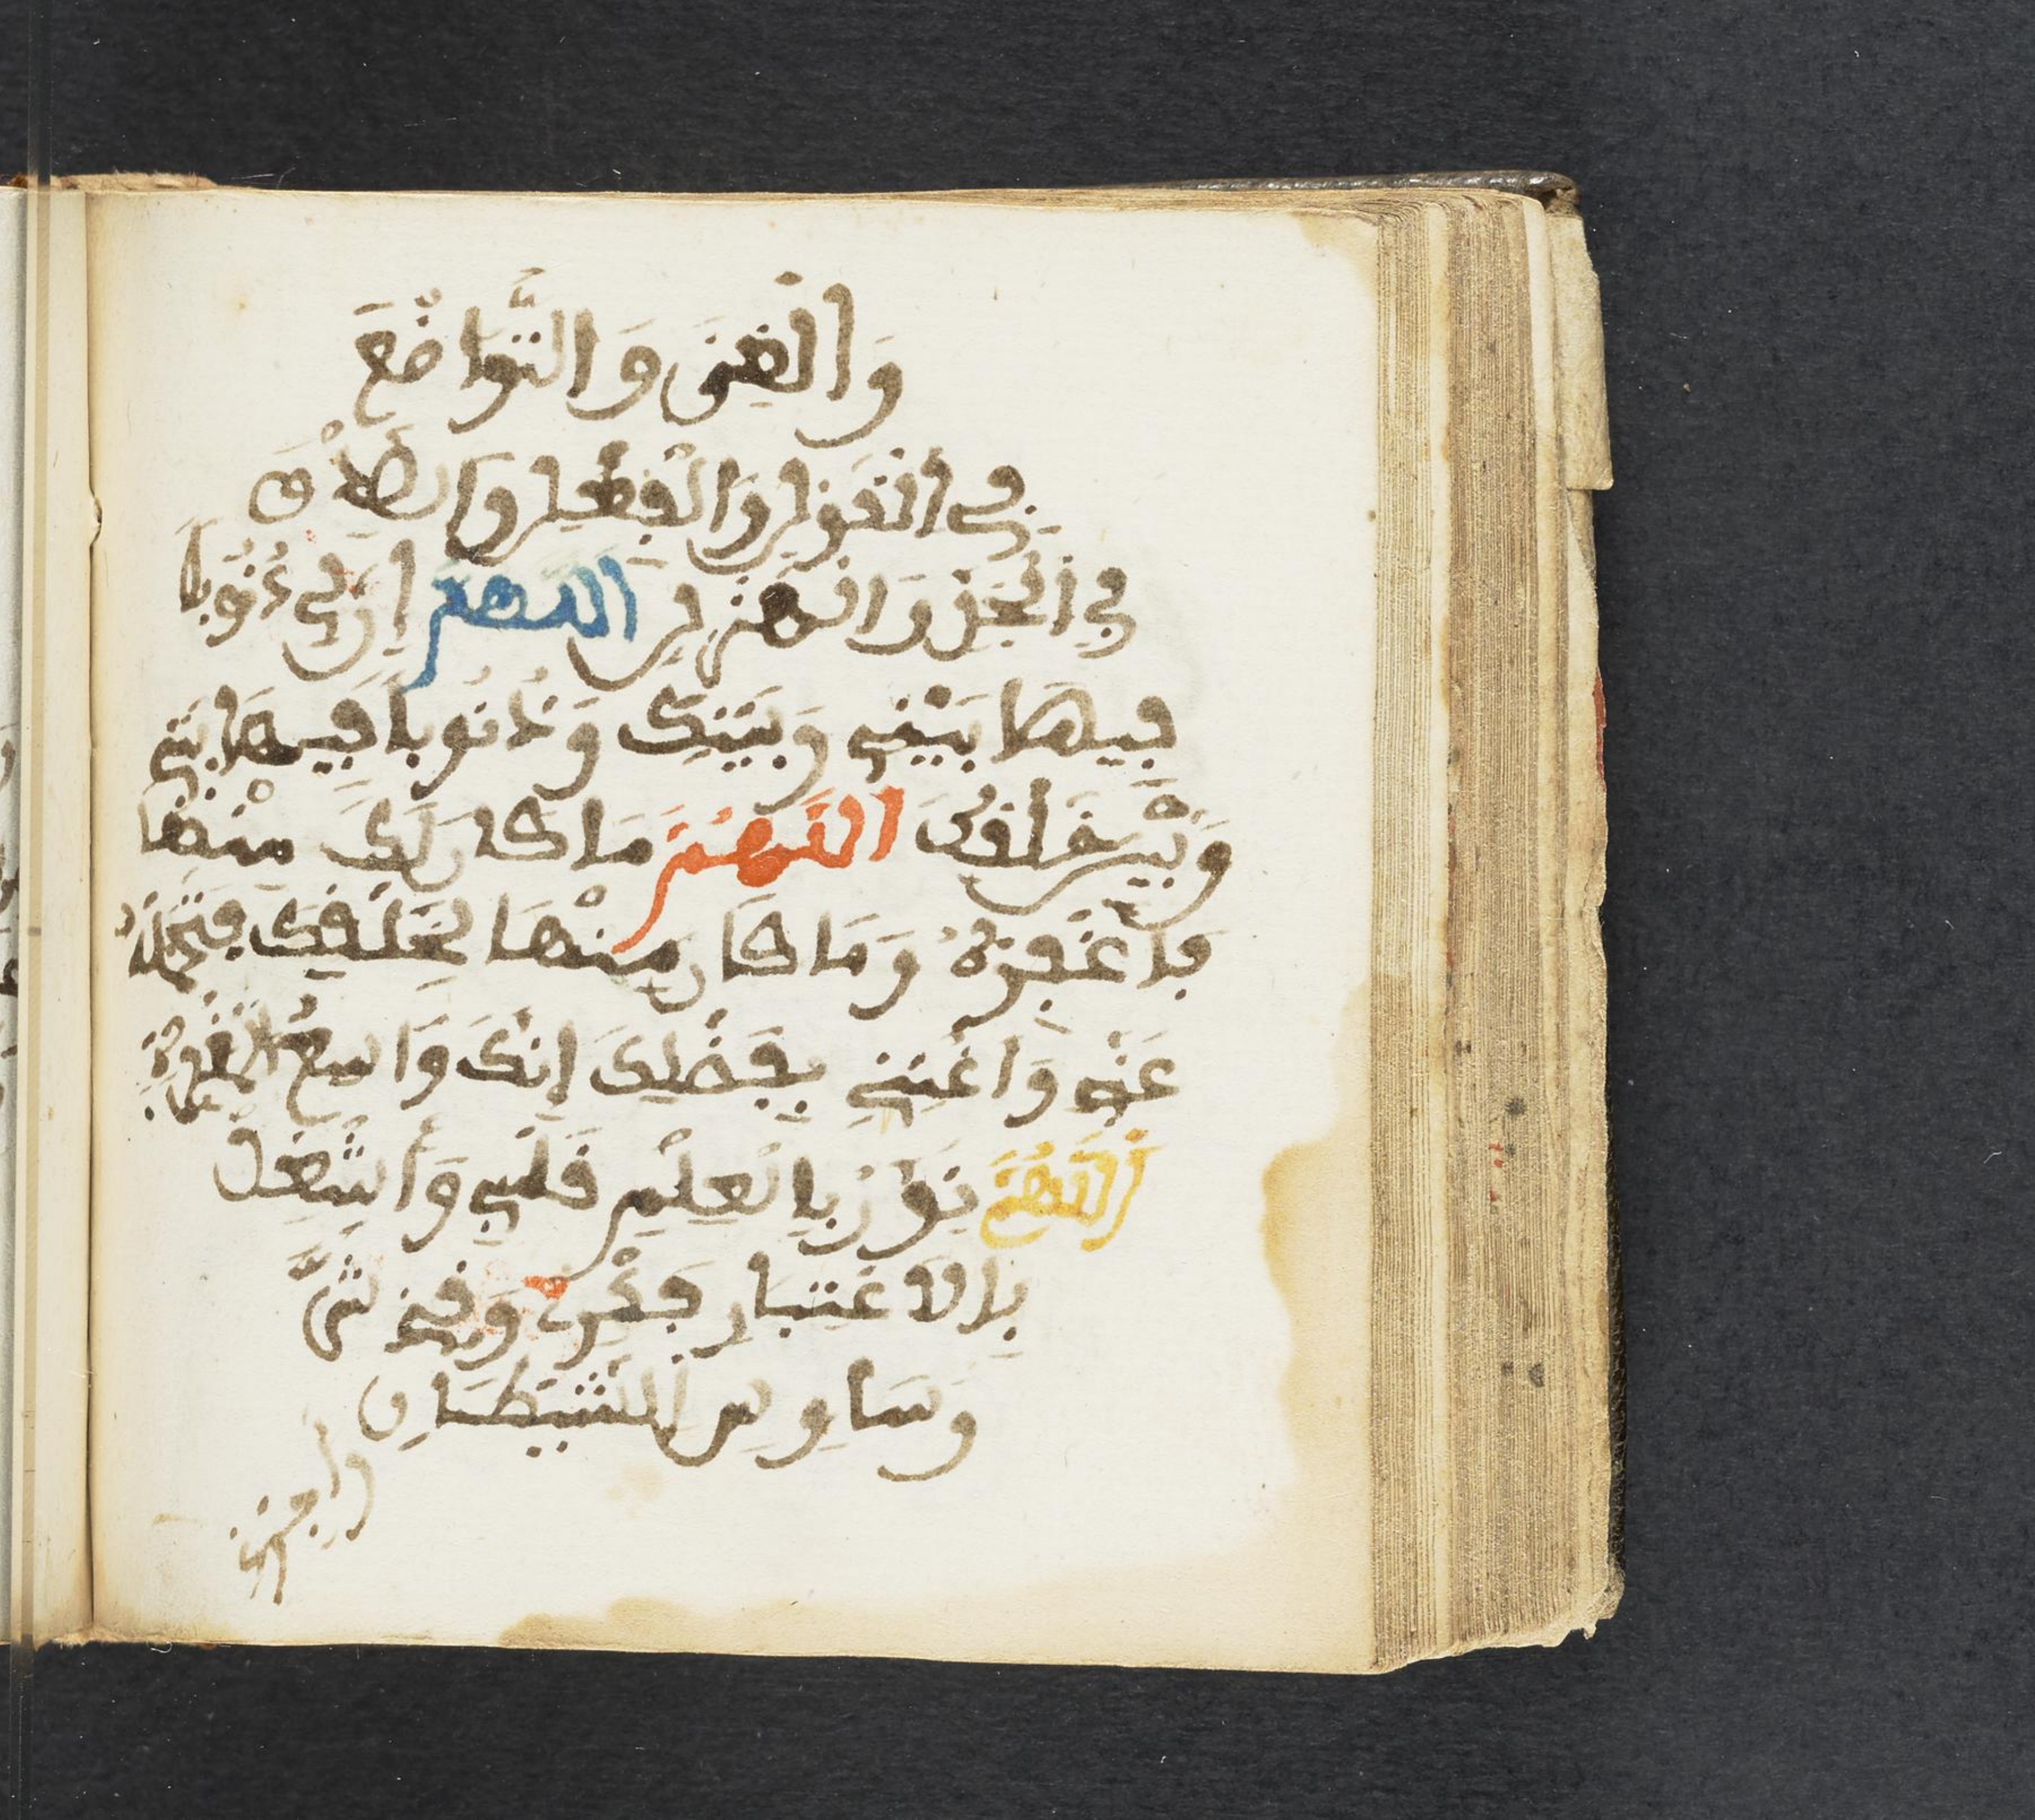 وَالْغِنَى وَالتَّوَاضُعَ
فِي الْقَوْلِ وَالْفِعْلِ وَالصِّدْقَ
فِي الْجِدِّ وَالْهَزْلِ اللَّهُمَّ إِنَّ لِي ذُنُوبًا
فِيمَا بَيْنِي وَبَيْنَكَ وَذُنُوبًا فِيمَا بَيْنِي
وَبَيْنَ خَلْقِكَ اللَّهُمَّ مَا كَانَ لَكَ مِنْهَا
فَاغْفِرْهُ وَمَا كَانَ مِنْهَا لِخَلْقِكَ فَتَحَمَّلْهُ
عَنِّي وَاغْنِنِي بِفَضْلِكَ إِنَّكَ وَاسِعُ الْمَغْفِرَةِ
اللَّهُمَّ نَوِّرْ بِالْعِلْمِ قَلْبِي وَاسْتَعْمِلْ
بِالِاعْتِبَارِ فِكْرِي وَقِنِي شَرَّ
وَسَاوِسِ الشَّيْطَانِ
وأجرني